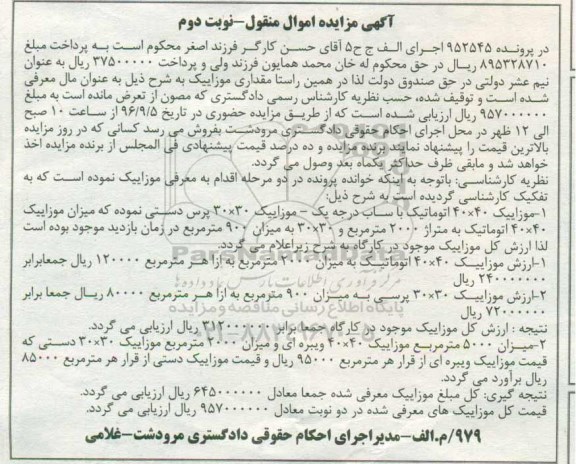 آگهی مزایده اموال منقول-نوبت دوم
در پرونده ۹۵۲۵۴۵ اجرای الف ج ح۵ آقای حسن کارگر فرزند اصغر محکوم است به پرداخت مبلغ
۸۹۵۳۲۸۷۱۰ ریال در حق محکوم له خان محمد همایون فرزند ولی و پرداخت ۳۷۵۰۰۰۰۰ ریال به عنوان
نیم عشر دولتی در حق صندوق دولت لذا در همین راستا مقداری موزاییک به شرح ذیل به عنوان مال معرفی
شده است و توقیف شده، حسب نظریه کارشناس رسمی دادگستری که مصون از تعرض مانده است به مبلغ
۹۵۷۰۰۰۰۰۰ ریال ارزیابی شده است که از طریق مزایده حضوری در تاریخ ۹۶/۹/۵ از ساعت ۱۰ صبح
الی ۱۲ ظهر در محل اجرای احکام حقوقی دادگستری مرودشت بفروش می رسد کسانی که در روز مزایده
بالاترین قیمت را پیشنهاد نمایند برنده مزایده و ده درصد قیمت پیشنهادی فی المجلس از برنده مزایده اخذ
خواهد شد و مابقی ظرف حداکثر یکماه بعد وصول می گردد.
نظریه کارشناسی: باتوجه به اینکه خوانده پرونده در دو مرحله اقدام به معرفی موزاییک نموده است که به
تفکیک کارشناسی گردیده است به شرح ذیل:
۱-موزاییک ۴۰×۴۰ اتوماتیک با ساب درجه یک - موزاییک ۳۰×۳۰ پرس دستی نموده که میزان موزاییک
۴۰×۴۰ اتوماتیک به متراژ ۲۰۰۰ مترمربع و ۳۰×۳۰ به میزان ۹۰۰ مترمربع در زمان بازدید موجود بوده است
لذا ارزش کل موزاییک موجود در کارگاه به شرح زیراعلام می گردد.
۱-ارزش موزاییک ۴۰×۴۰ اتوماتیک به میزان ۲۰۰۰ مترمربع به ازا هر مترمربع ۱۲۰۰۰۰ ریال جمعابرابر
۲۴۰۰۰۰۰۰۰ ریال
۲-ارزش موزاییک ۳۰×۳۰ پرسی به میزان ۹۰۰ مترمربع به ازا هر مترمربع ۸۰۰۰۰ ریال جمعا برابر
۷۲۰۰۰۰۰۰ ریال
نتیجه : ارزش کل موزاییک موجود در کارگاه جمعا برابر ۳۱۲۰۰۰۰۰۰ ریال ارزیابی می گردد.
۲-میزان ۵۰۰۰ مترمربع موزاییک ۴۰×۴۰ ویبره ای و میزان ۲۰۰۰ مترمربع موزاییک ۳۰×۳۰ دستی که
قیمت موزاییک ویبره ای از قرار هر مترمربع ۹۵۰۰۰ ریال و قیمت موزاییک دستی از قرار هر مترمربع ۸۵۰۰۰
ریال برآورد می گردد.
نتیجه گیری: کل مبلغ موزاییک معرفی شده جمعا معادل ۶۴۵۰۰۰۰۰۰ ریال ارزیابی می گردد.
قیمت کل موزاییک های معرفی شده در دو نوبت معادل ۹۵۷۰۰۰۰۰۰ ریال ارزیابی می گردد.
۹۷۹/م.الف-مدیراجرای احکام حقوقی دادگستری مرودشت-غلامی